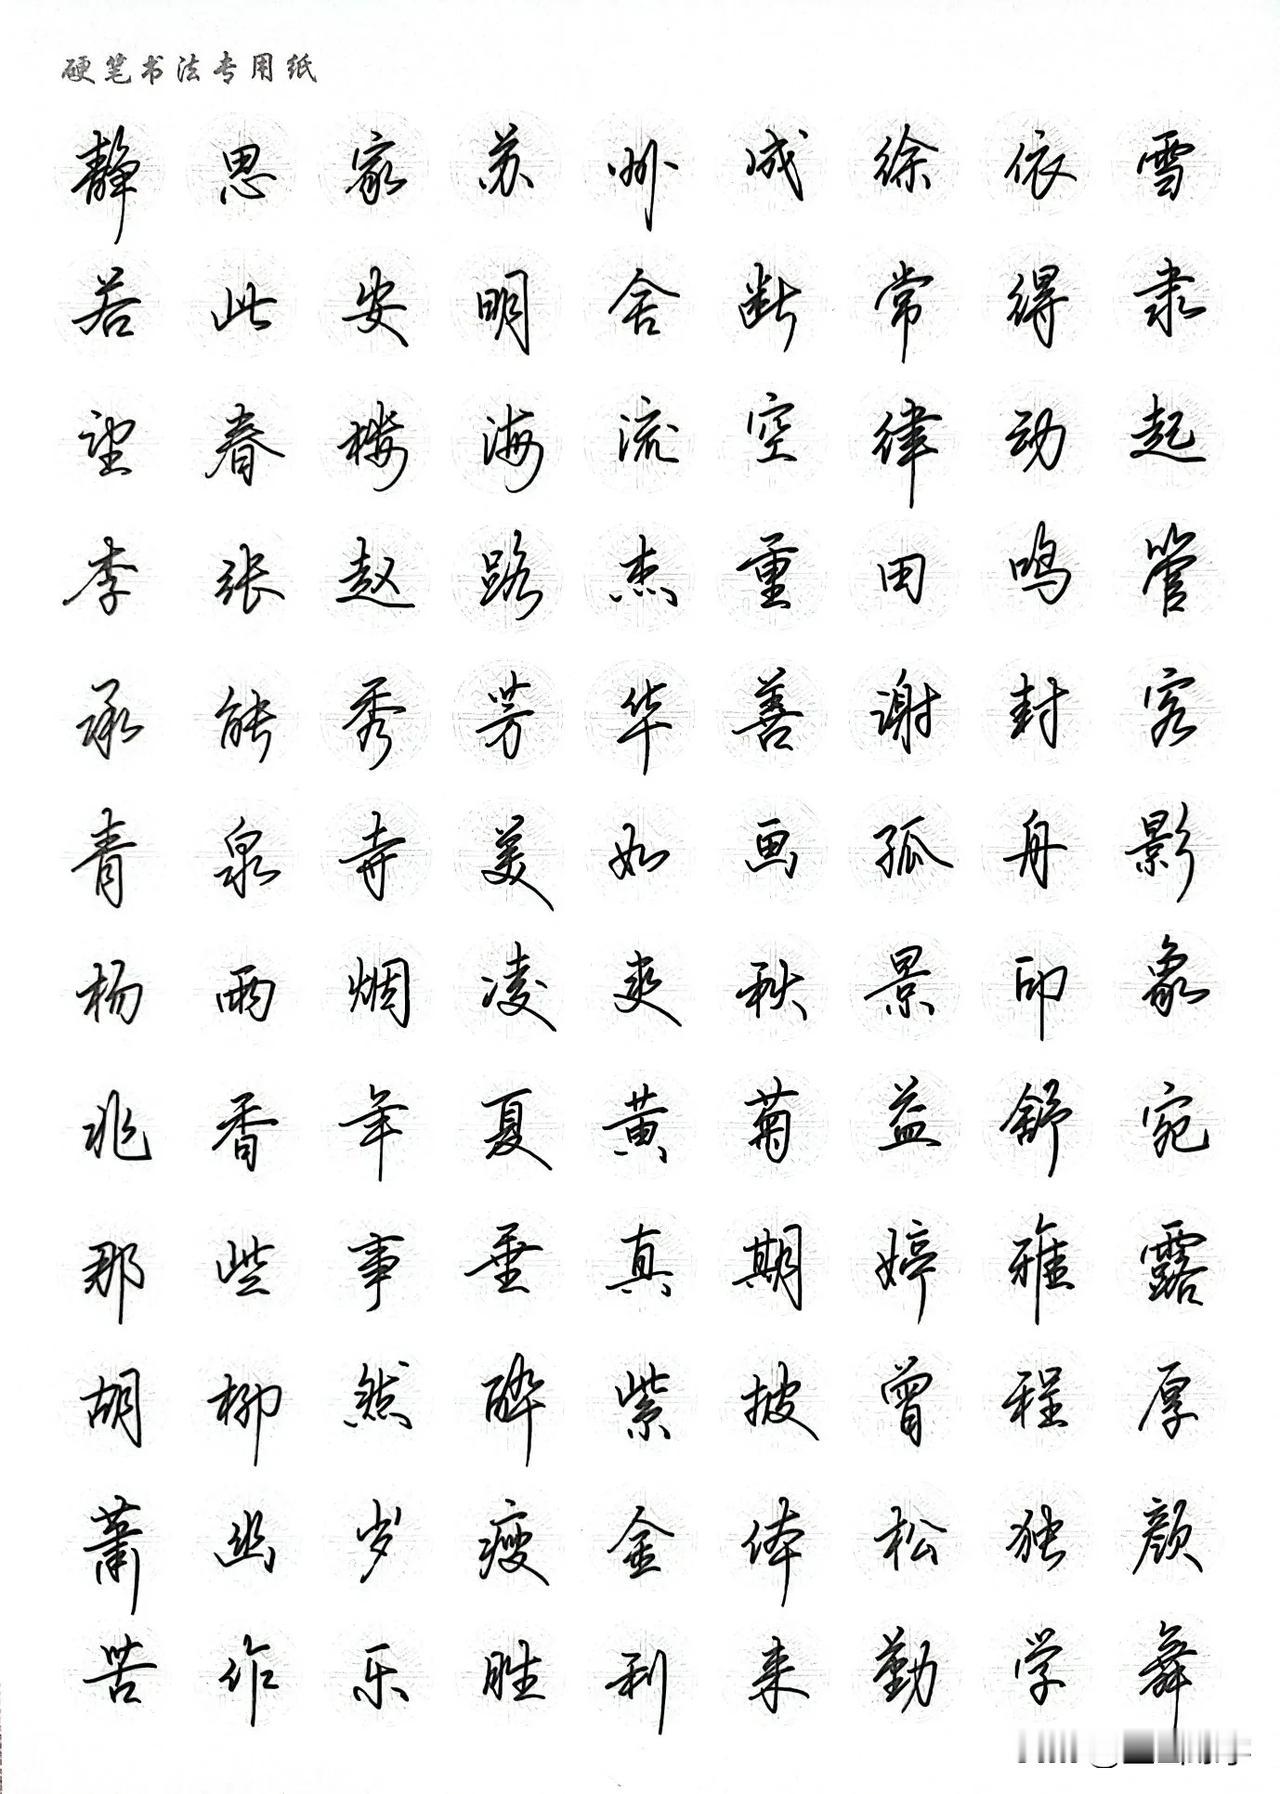 硬笔书法专用纸
静思家苏州成徐依雪
若此安明舍断常得隶
望春楼海流空律动起
李张赵路杰重田鸣管
承能秀芳华善谢封客
青泉寺美如画孤舟影
杨雨烟凌爽秋景印象
兆香年夏黄菊益舒宛
那些事垂真期婷雅露
胡柳然醉紫披曾程厚
萧幽岁瘦金体松独颜
苦作乐胜利来勤学舞